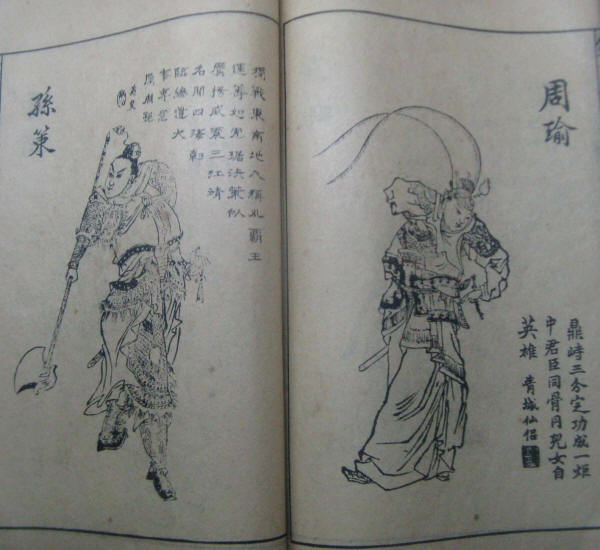 周瑜
鼎峙三分定功成一炬
中君臣同骨肉兒女自
英雄 青城仙侶
獨戰東南地人稱小霸王
運籌如虎踞決策似
鷹揚威震三江靖
名聞四海
臨終遺大
事專意
孫策